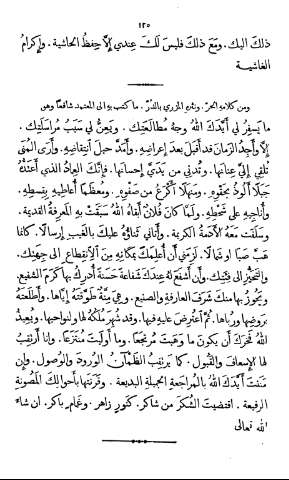 ١٢٥
ذلك اليك . ومعَ ذلك فليس لكَ عندي إلّا حِفظُ الحاشية . وإكرامُ
الغاشية
ومن كلامهِ الحرّ . ونثرهِ المزري بالدُرّ . ما كتب بهِ الى المعتمد شافعًا وهو
ما يَسفِرُ لي أَيَّدكَ اللهُ وجهُ مطالعتِك . ويَعِنُّ لي سَبَبُ مراسَلتِك .
إلّا وأَجِدُ الزمانَ قد اقبلَ بعدَ إعراضهِ . وأَمَدَّ حبلَ أنتقاضِهِ . وأَرى المُنى
تُلقي إِليَّ عِنانَها . وتُدني من يَدَيَّ إِحسانَها . فإِنَّكَ العِمادُ الذي أَعتدُّهُ
جبلًا أَلوذُ بحِقوهِ . ومَنهلًا أَكرَعُ من صَفوهِ . ومُعظَّمًا أُعاطيهِ بقِسطهِ .
وأُناجيهِ على شَحطهِ . ولمّا كانَ فُلانٌ أبقاهُ اللهُ سَبقت بهِ المعرفةُ القديمة .
وسلفت معَهُ الأَذمّةُ الكريمة . وأتاني ثناؤُك عليكَ بالغيبِ إِرسالًا . كانما
هبَّ صبًا او شمالًا . لزمني أن أُعلِمكَ بمكانهِ من الأنقطاعِ الى جهتِكَ .
والتحيُّزِ الى فِئتِكَ . وإن أَشفعَ لهُ عندَكَ شفاعةً حَسنةً أُدركُ بها كرمَ الشفيع .
ويَحوزُ بها منكَ شرفَ العارفةِ والصنيع . وهي مِنَّةٌ طوَّقتَهُ إيَّاها . وأطلعتَهُ
بروضِها ورُباها . ثم أُعتُرِضَ عليهِ فيها . وقد شُهِرَ مُلكُهُ لها ولنواحيها . ويُعيذُ
اللهُ فخرَكَ أن يكونَ ما وهبتَ مرتَجعًا . وما أَوليتَ مُنتزَعًا . وانا أَرتقِبُ
لها الإِسعافَ والقبول . كما يرتقبُ الظمآنُ الورودَ والوصول . وإن
مَننتَ أيَّدكَ اللهُ بالمراجعةِ الجميلةِ البديعة . وقَرنتَها بأَحوالِكَ المصونةِ
الرفيعة . اقتضيتَ الشكرَ من شاكر . كنَورٍ زاهر . وغمامٍ باكر . ان شاءَ
الله تعالى